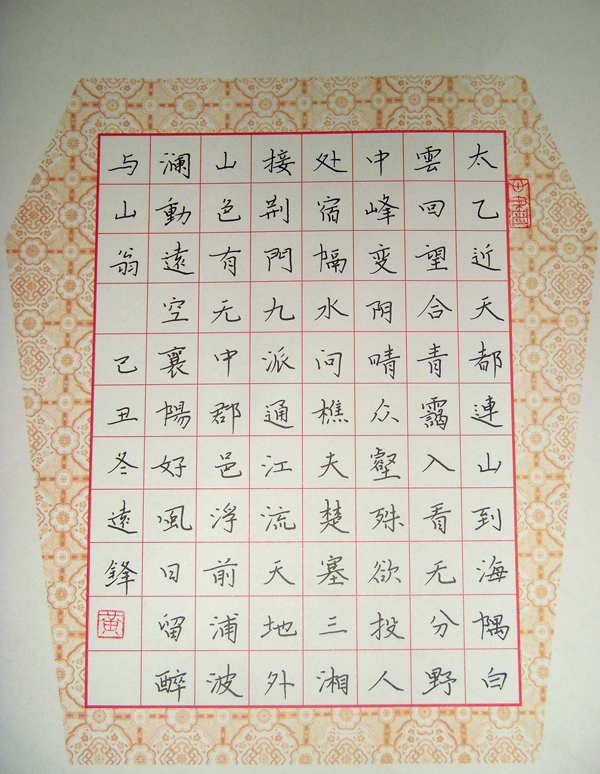 太乙近天都連山到海隅白
雲回望合青靄入看无分野
中峰变阴晴众壑殊欲投人
处宿隔水问樵夫楚塞三湘
接荆門九派通江流天地外
山色有无中郡邑浮前浦波
澜動遠空襄陽好風日留醉
与山翁 己丑冬遠鋒
黄